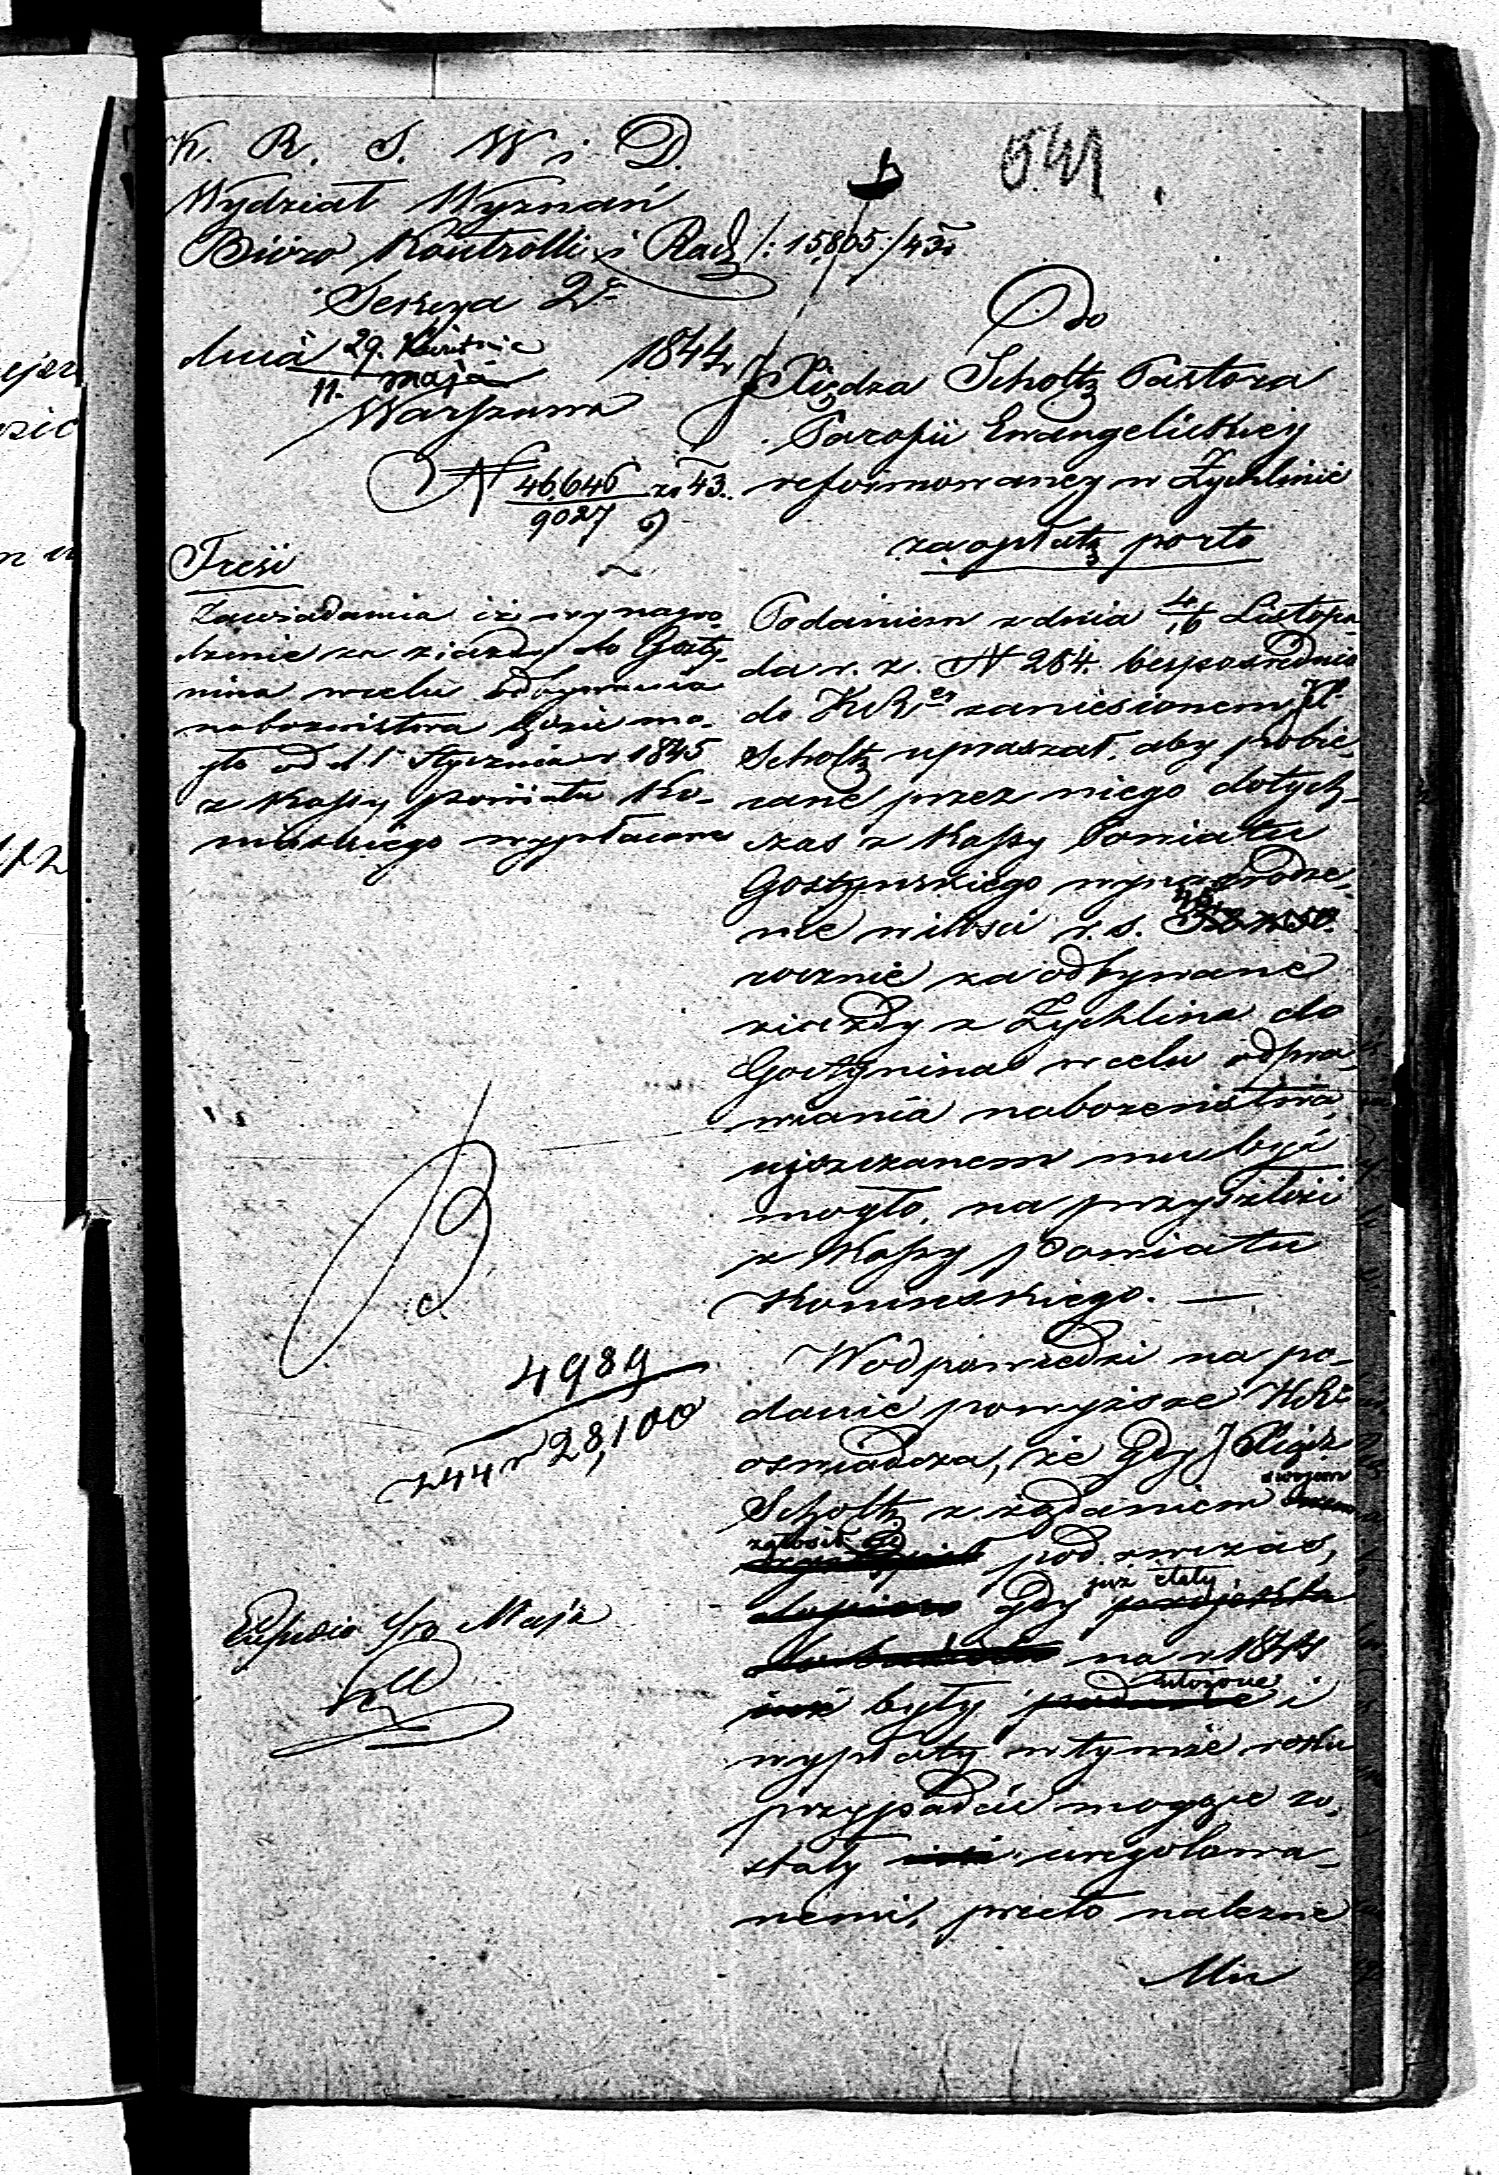 K. R. S. W i D.
Wydział Wyznań
Biuro Kontrolli i Rad /: 15,805 :/ 43.
Sekcya 2ª
dnia 29. Kwietnia
11. maja 1844
Warszawa
N 46,646 z 43.
9027
541
Do
JXiędza Scholtz Pastora
Parafii Ewangelickiey
reformowaney w Żychlinie
za opłatą porto
Treść
Zawiadamia iż wynagro-
dzenie za ziazdy do Gosty-
nina w celu odbywania
nabożeństwa będzie mo-
gło od d. 1 Stycznia r 1845
z Kassy powiatu Ko-
nińskiego wypłacone
Podaniem z dnia 4/16 Listopa-
da r. z. N 284. bezpośrednio
do KR zaniesionem JX.
Scholtz upraszał, aby pobie-
rane przez niego dotych-
czas z Kassy Powiatu
Gostyńskiego wynagrodze-
nie w ilości r. s.
rocznie za odbywane
ziazdy z Żychlina do
Gostynina w celu odpra-
wiania nabożeństwa
uiszczanem mu być
mogło, na przyszłość
z Kassy Powiatu
Konińskiego. —
W odpowiedzi na po-
danie powyższe KR
oświadcza, że gdy JXiądz
Scholtz z żądaniem swojem
zgłosił się pod. wczas,
gdy już etaty
na r 1844
były ułożone i
wypłaty w tymże roku
przypadać mogące zo-
stały uregulowa-
nemi, przeto należne
Mu
B
4989
z 44 r 28,100
Maja